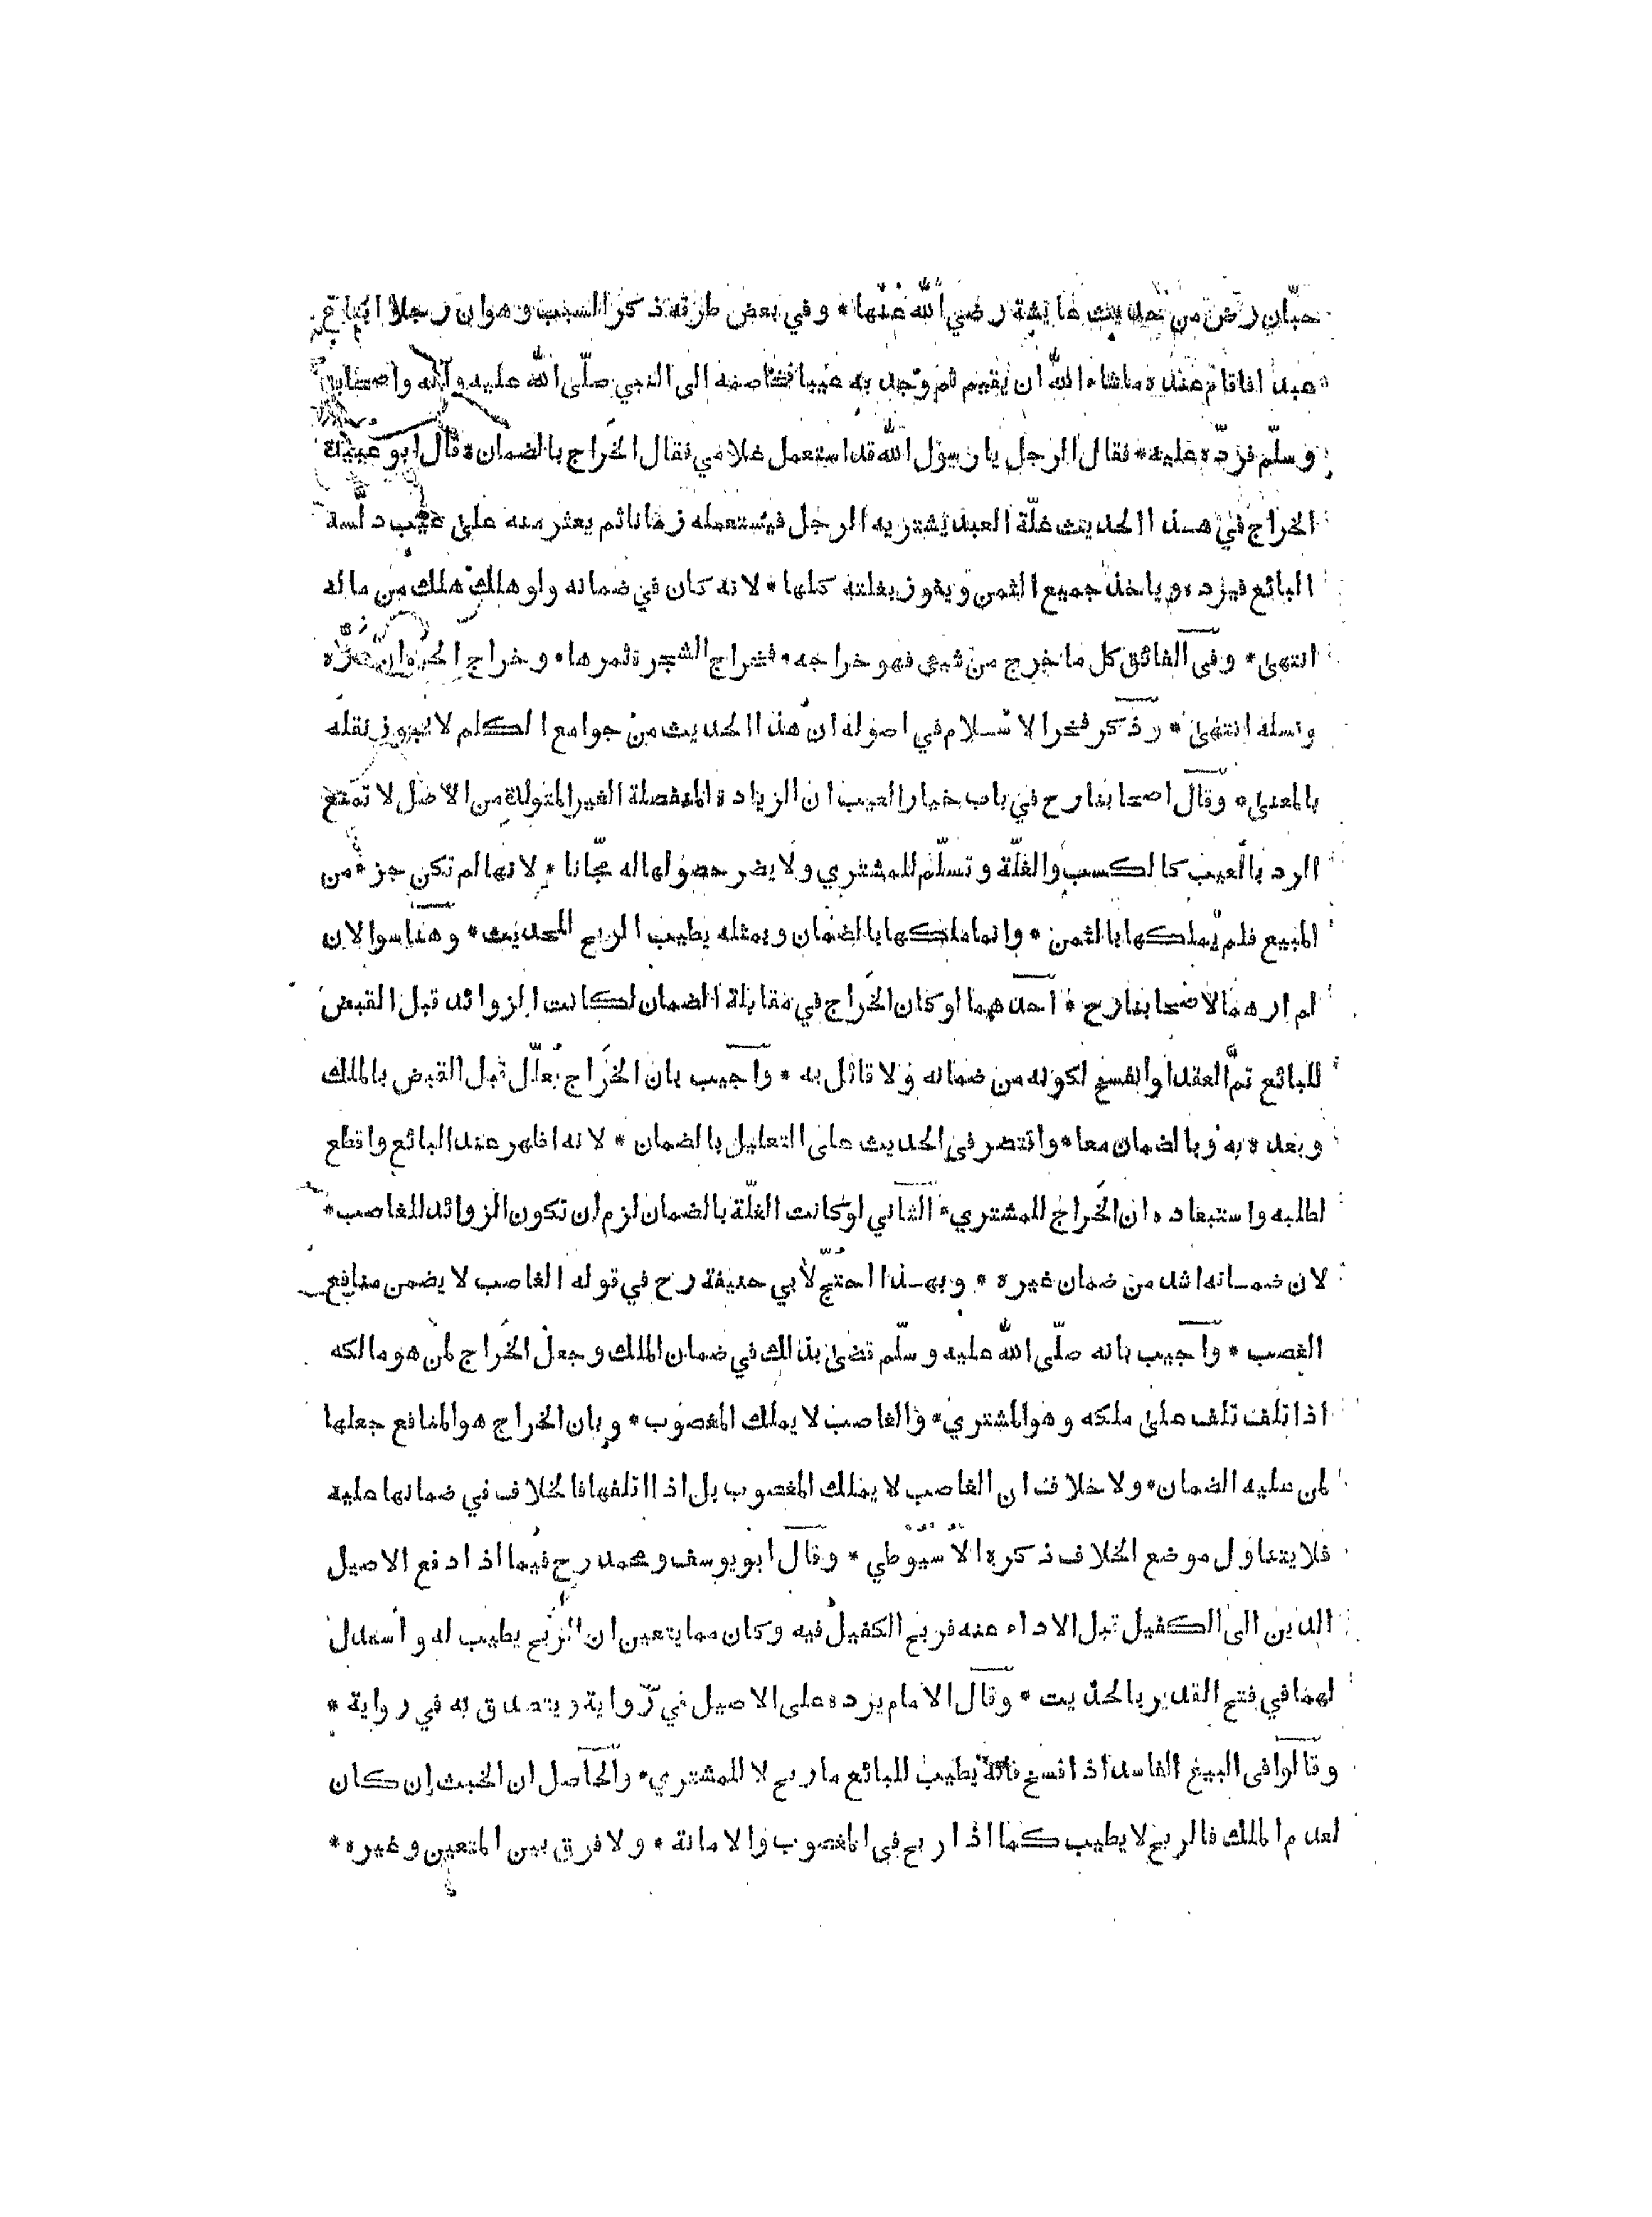 حبّان رض من حديث عايشة رضي الله عنها * وفي بعض طرقه ذكر السبب وهوان رجلا ابتاع
عبدا فاقام عنده ماشاء الله ان يقيم ثم وجد به عيبا فخاصمه الى النبي صلّى الله عليه وآله واصحابه
وسلّم فردّه عليه * فقال الرجل يا رسول الله قد استعمل غلامي فقال الخَراج بالضمان * قال ابو عبيدة
الخراج في هذا الحديث غلّة العبد يشتريه الرجل فيستعمله زمانا ثم يعثر منه على عيب دلّسه
البائع فيرده وياخذ جميع الثمن ويفوز بغلته كلها * لانه كان في ضمانه ولو هلك هلك من ماله
انتهى * وفى الفائق كل ما خرج من شيئ فهو خراجه * فخراج الشجرة ثمرها * وخراج الحيوان درّه
ونسله انتهى * وذكر فخر الاسلام في اصوله ان هذا الحديث من جوامع الكلم لا يجوز نقله
بالمعنى * وقال اصحابنا رح في باب خيار العيب ان الزيادة المنفصلة الغير المتولدة من الاصل لا تمنع
الرد بالعيب كالكسب والغلّة وتسلّم للمشتري ولا يضر حصولها له مجّانا * لانها لم تكن جزء من
المبيع فلم يملكها بالثمن * وانما ملكها بالضمان وبمثله يطيب الربح للحديث * وهنا سوالان
لم ارهما لاصحابنا رح * احدهما لو كان الخَراج في مقابلة الضمان لكانت الزوائد قبل القبض
للبائع تمّ العقد او انفسخ لكونه من ضمانه ولا قائل به * واجيب بان الخَراج يُعلّل قبل القبض بالملك
وبعده به وبالضمان معا * واقتصر فى الحديث على التعليل بالضمان * لانه اظهر عند البائع واقطع
لطلبه واستبعاده ان الخَراج للمشتري * الثاني لو كانت الغلّة بالضمان لزم ان تكون الزوائد للغاصب *
لان ضمانه اشد من ضمان غيره * وبهذا احتُجّ لأبي حنيفة رح في قوله الغاصب لا يضمن منافع
الغصب * واجيب بانه صلّى الله عليه وسلّم قضى بذالك في ضمان الملك وجعل الخَراج لمن هو مالكه
اذا تلف تلف على ملكه وهو المشتري * والغاصب لا يملك المغصوب * وبان الخراج هو المنافع جعلها
لمن عليه الضمان * ولا خلاف ان الغاصب لا يملك المغصوب بل اذا اتلفها فالخلاف في ضمانها عليه
فلا يتناول موضع الخلاف ذكره الاُسُيُوْطي * وقال ابو يوسف ومحمد رح فيما اذا دفع الاصيل
الدين الى الكفيل قبل الاداء عنه فربح الكفيل فيه وكان مما يتعين ان الربح يطيب له واستدل
لهما في فتح القدير بالحديث * وقال الامام يرده على الاصيل في رواية ويتصدق به في رواية *
وقالوا فى البيع الفاسد اذا فسخ فانه يطيب للبائع ما ربح لا للمشتري * والحاصل ان الخبث إن كان
لعدم الملك فالربح لا يطيب كما اذا ربح فى المغصوب والامانة * ولا فرق بين المتعين وغيره *